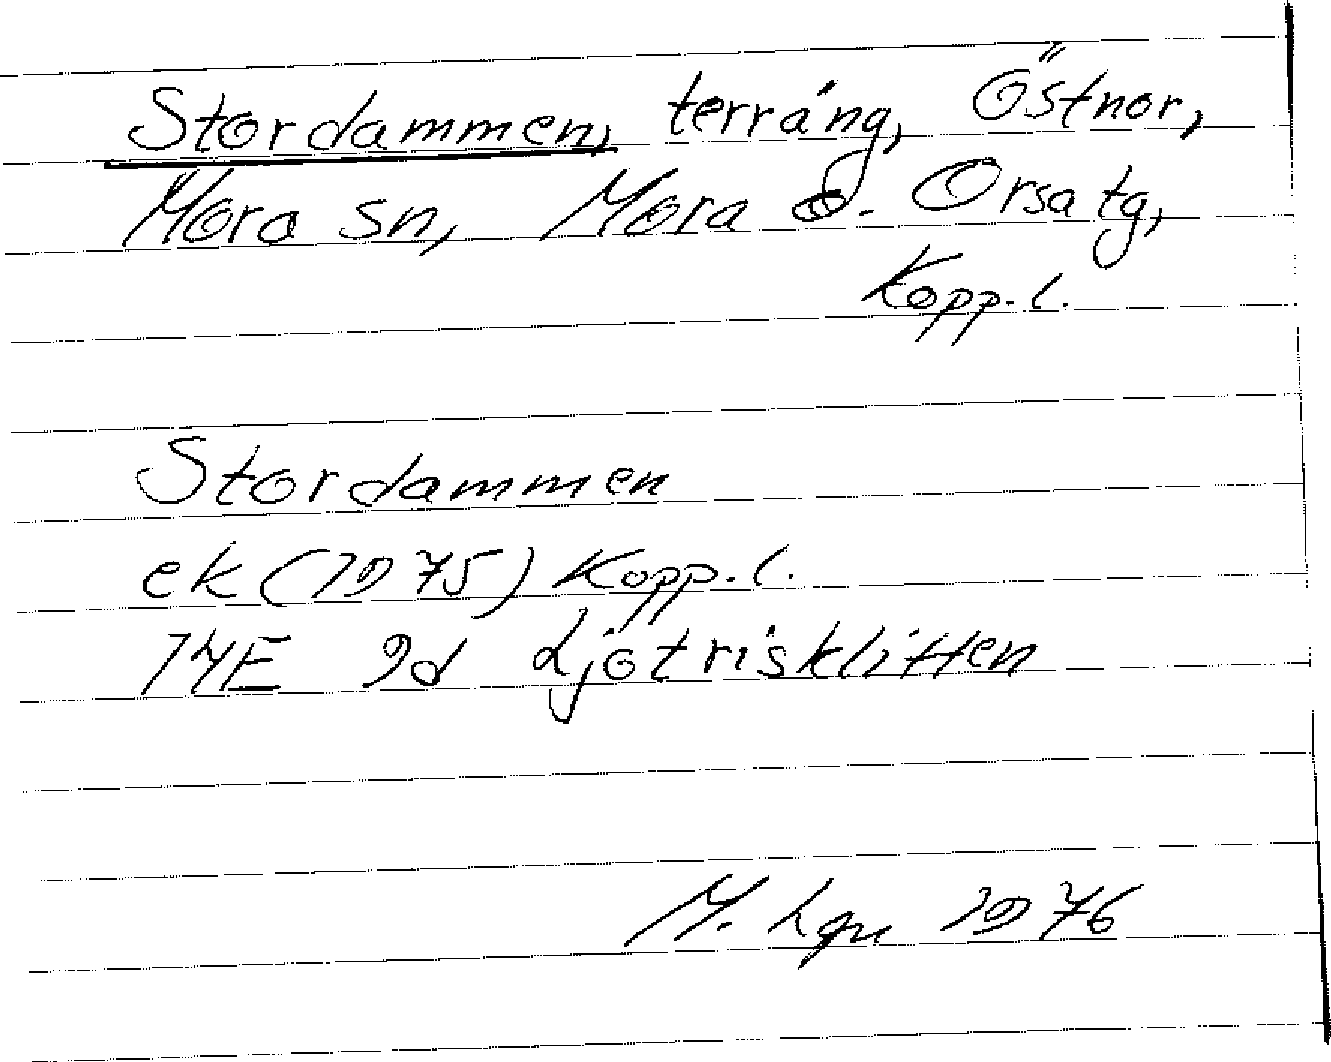 Stordammen, terräng, Östnor,
Mora sn, Mora o. Orsa tg,
Kopp. l.
Stordammen
ek (1975) Kopp. l.
14E 9d Ljötriskliften
M. 1976